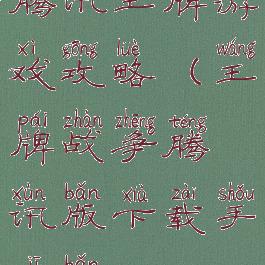 腾讯王牌游
xì gōng lüè wáng
戏攻略(王
pái zhàn zhēng téng
牌战争腾
xùn bǎn xià zài shǒu
讯版下载手
jī bǎn